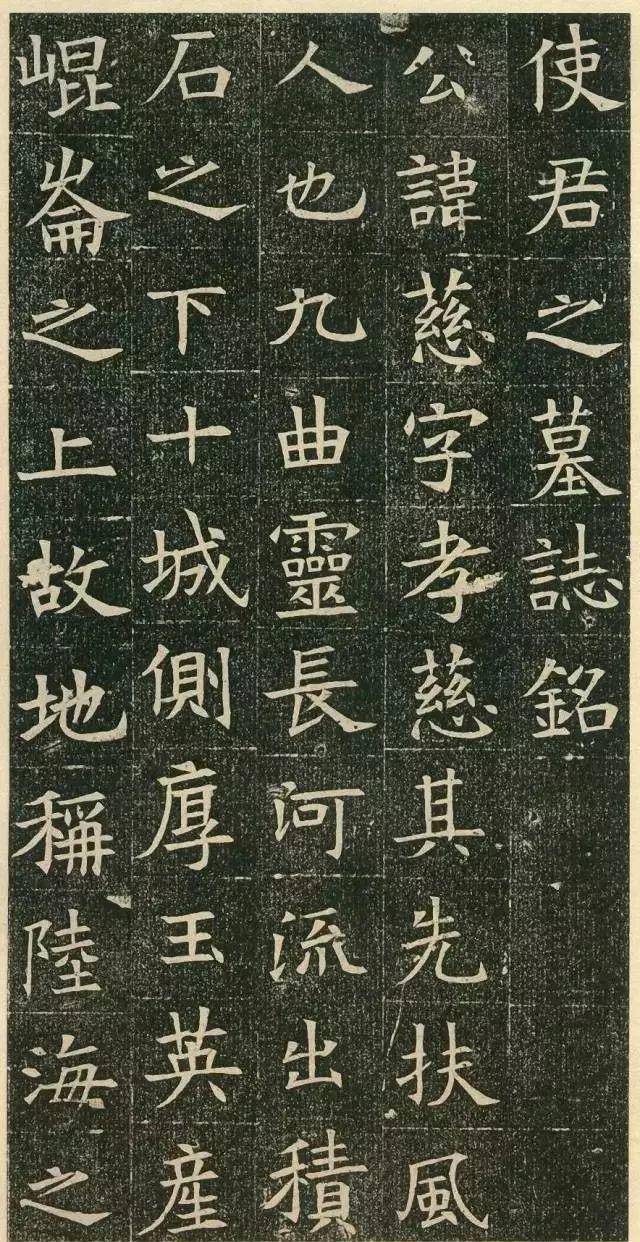 使君之墓誌銘
公諱慈字孝慈其先扶風
人也九曲靈長河流出積
石之下十城側厚玉英産
崐崙之上故地稱陸海之